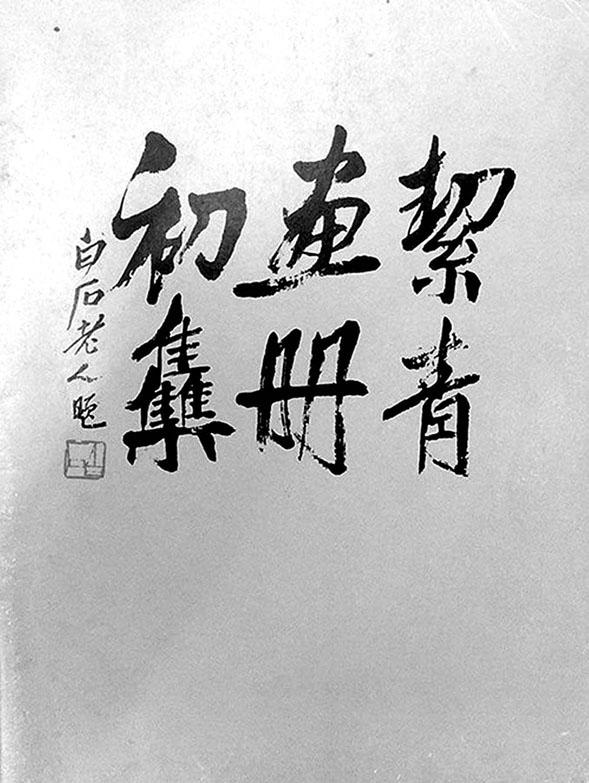 絜青
画册
初集
白石老人题